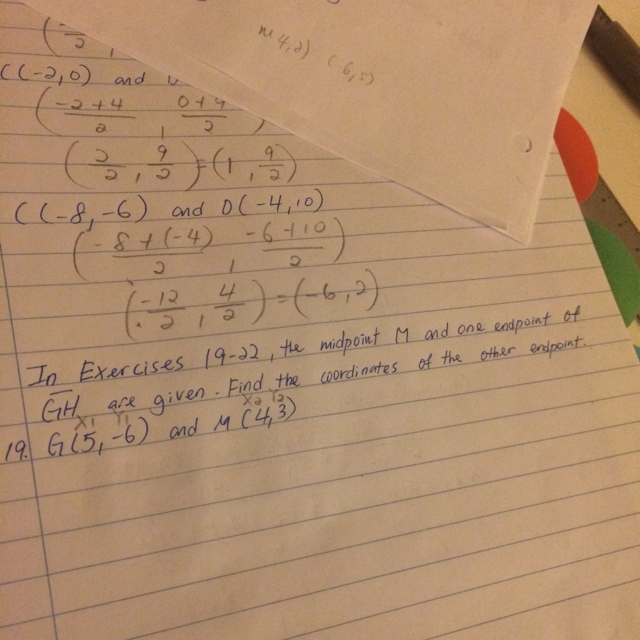 M(4,2) (6,5)
2
C(-2,0) and
(-2+4/2, 0+9/2)
(2/2, 9/2)=(1, 9/2)
C(-8,-6) and D(-4,10)
(-8+(-4)/2, -6+10/2)
(-12/2, 4/2)=(-6,2)
In Exercises 19-22, the midpoint M and one endpoint of
GH are given. Find the coordinates of the other endpoint.
x1 y1 x2 y2
19. G(5,-6) and M(4,3)